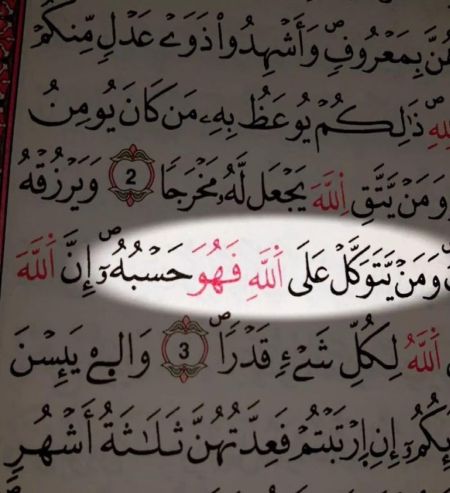 هُنَّ بِمَعْرُوفٍ وَأَشْهِدُواْ ذَوَےْ عَدْلٍ مِّنكُمْ
لِلهِ ذَٰلِكُمْ يُوعَظُ بِهِۦ مَن كَانَ يُومِنُ
وَمَنْ يَّتَّقِ اِللَّهَ يَجْعَل لَّهُۥ مَخْرَجاً 2 وَيَرْزُقْهُ
وَمَنْ يَّتَوَكَّلْ عَلَى اَللَّهِ فَهُوَ حَسْبُهُۥٓ إِنَّ اَللَّهَ
اَللَّهُ لِكُلِّ شَےْءٍ قَدْراً 3 وَالےِ يَئِسْنَ
إِنِ اِرْتَبْتُمْ فَعِدَّتُهُنَّ ثَلَٰثَةُ أَشْهُرٍ